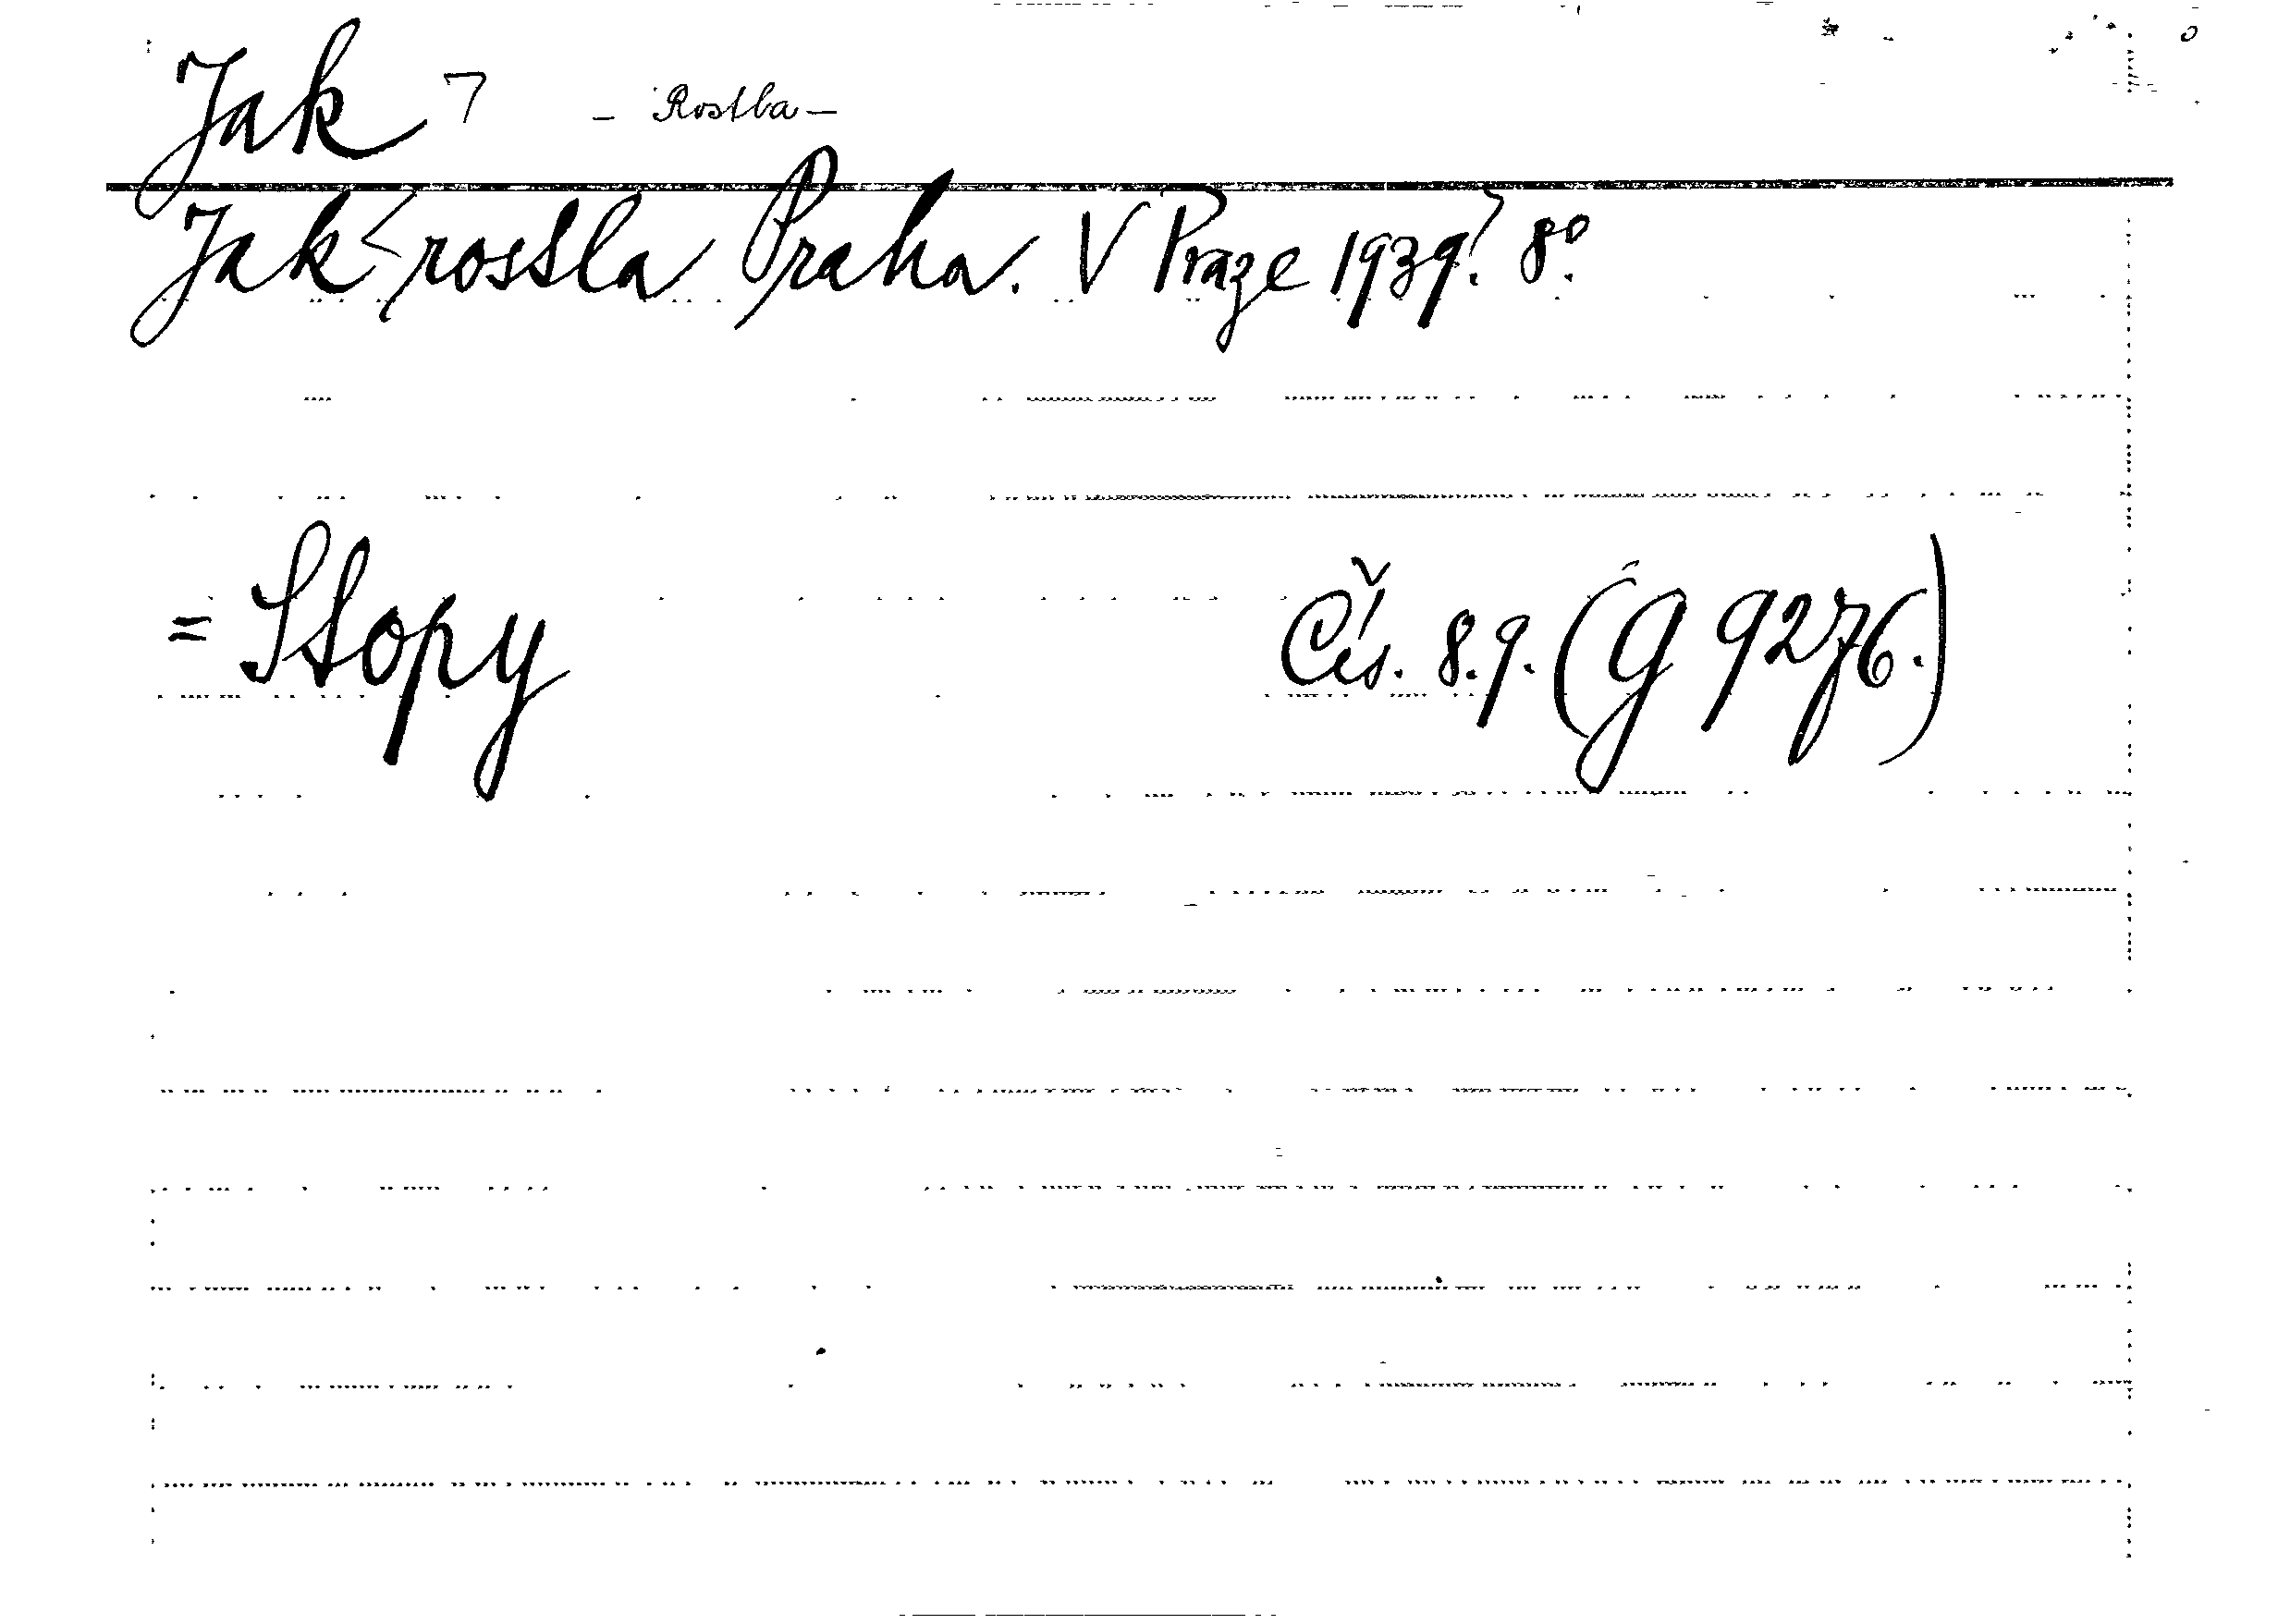 Jak ㄱ – Rostla –
Jak rostla Praha. V Praze 1939. 8º.
= Stopy Čís. 8.9. (G 9276.)